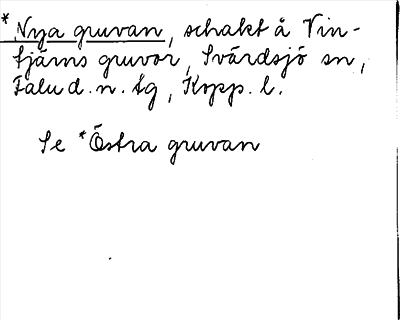 *Nya gruvan, schakt å Vin-
tjärns gruvor, Svärdsjö sn,
Falu d. n. tg, Kopp. l.
Se *Östra gruvan